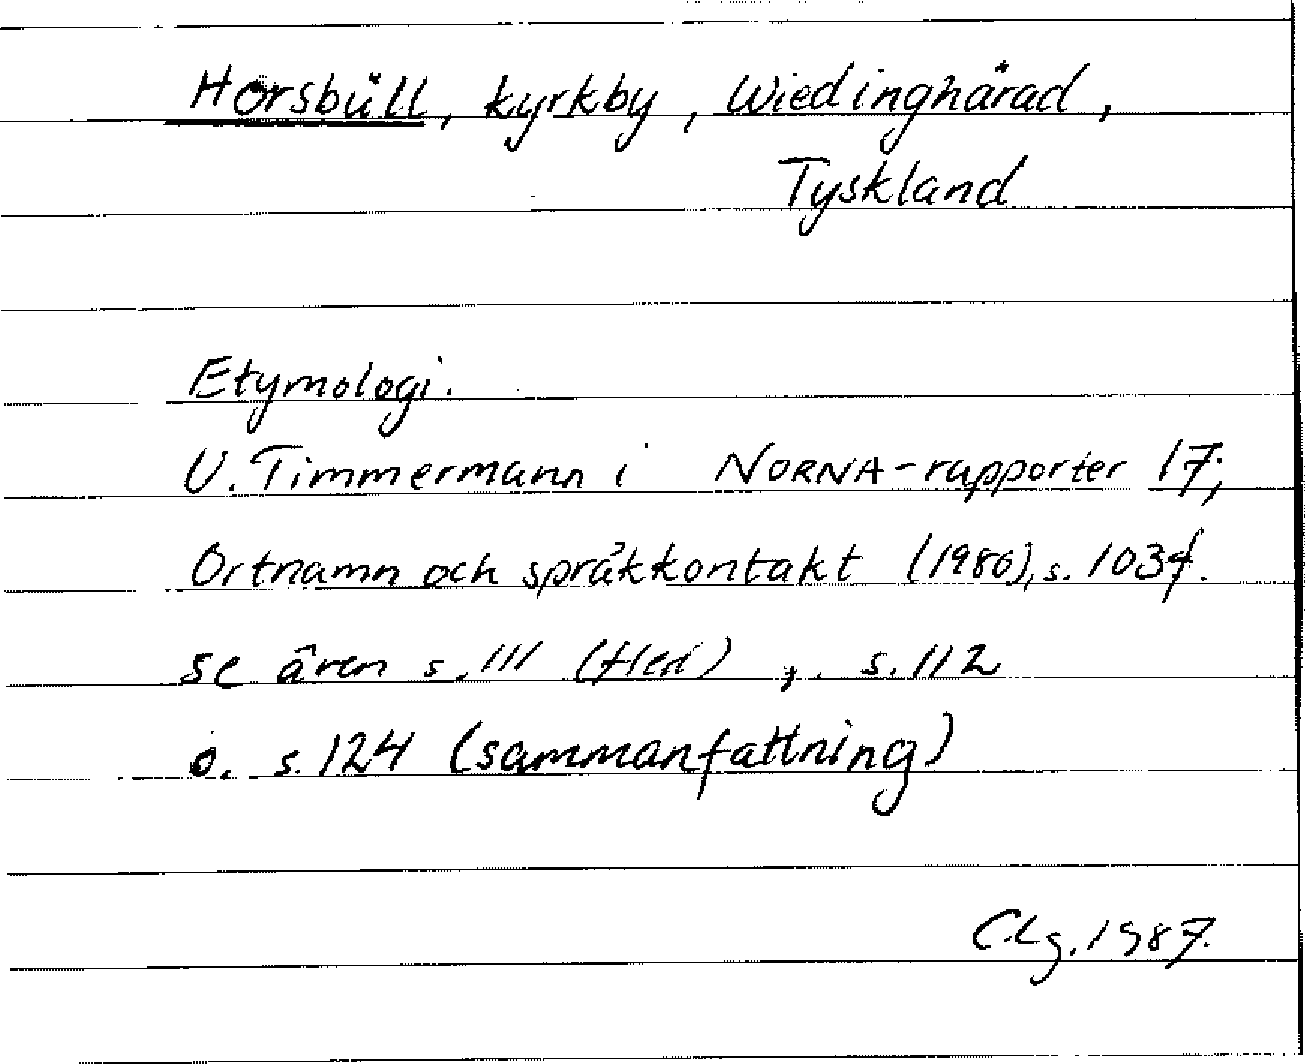 Horsbüll, kyrkby, Wiedinghärad,
Tyskland
Etymologi.
U. Timmermann i NORNA-rapporter 17;
Ortnamn och språkkontakt (1980), s. 103f.
se även s. 111 (Hed), s. 112
o. s. 124 (sammanfattning)
C.Lg. 1987.